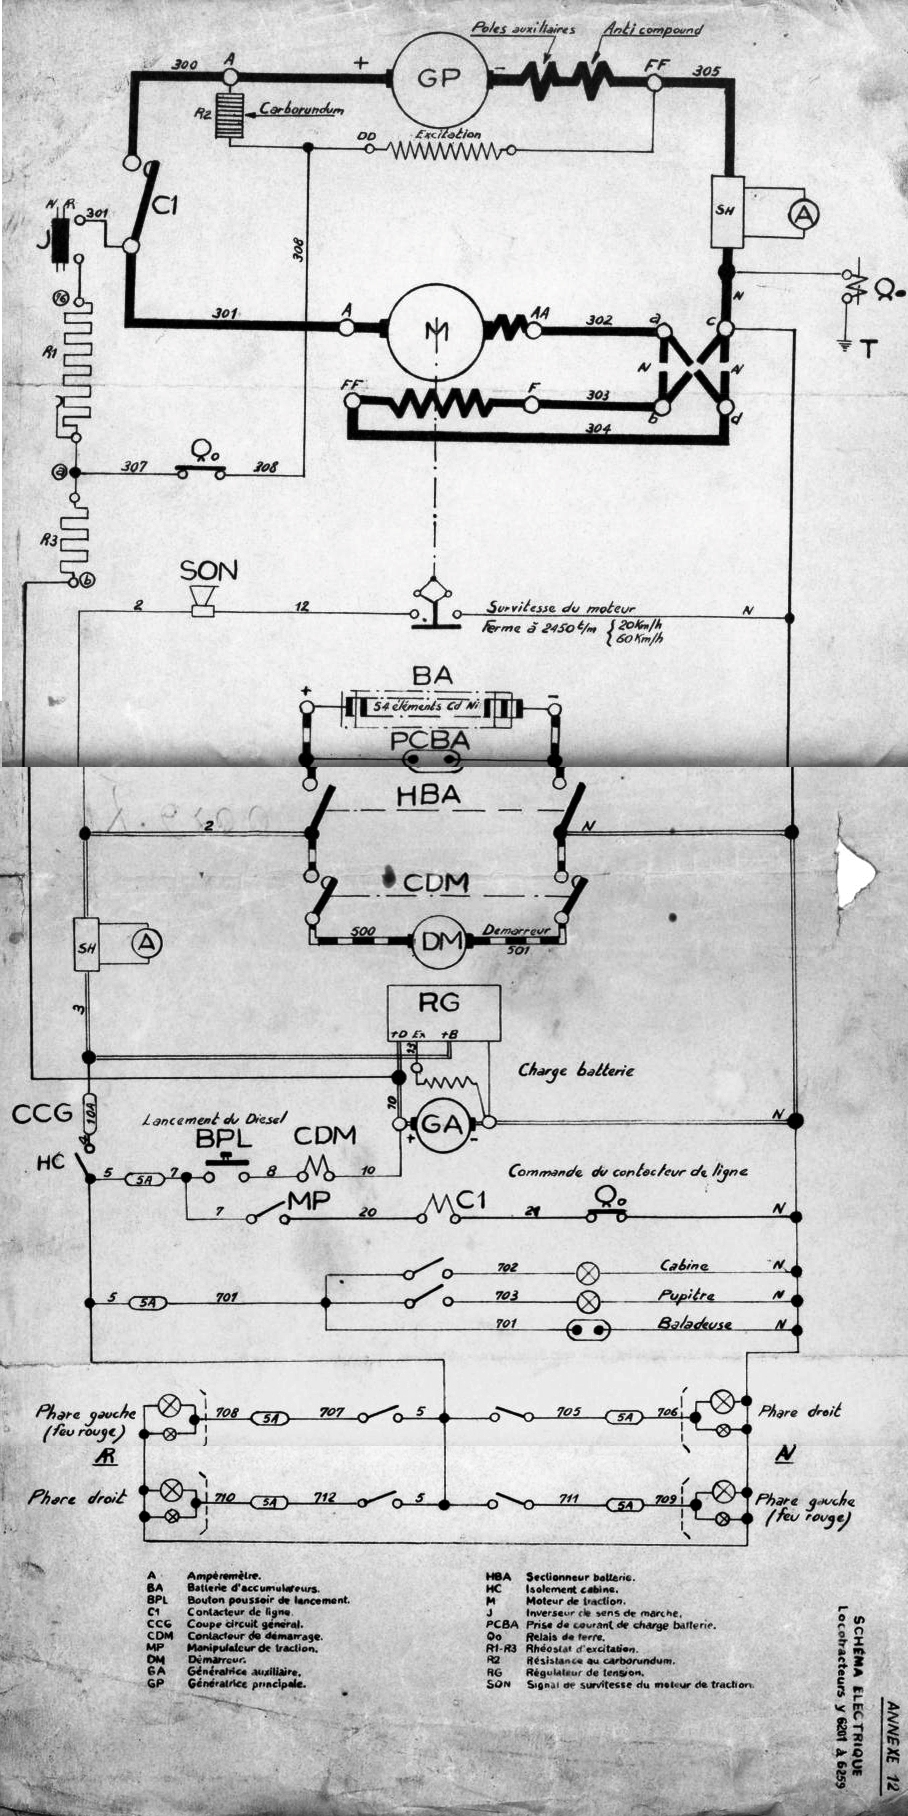 Poles auxiliaires
Anti compound
300
A
+
GP
-
FF
305
R2
Carborundum
DD
Excitation
C1
SH
A
N R
301
J
308
N
Qo
T
301
A
M
AA
302
a
c
R1
N
N
FF
F
303
b
d
304
a
307
Qo
308
R3
b
SON
2
12
Survitesse du moteur
N
Ferme à 2450 t/m { 20 Km/h
60 Km/h
BA
+
54 éléments Cd Ni
-
PCBA
HBA
2
N
CDM
500
DM
Demarreur
501
SH
A
3
RG
+D Ex +B
23
Charge batterie
10
CCG
10A
Lancement du Diesel
GA
+
-
N
BPL
CDM
HC
5
5A
7
8
10
Commande du contacteur de ligne
7
MP
20
C1
21
Qo
N
702
Cabine
N
5
5A
701
703
Pupitre
N
701
Baladeuse
N
Phare gauche
(feu rouge)
708
5A
707
5
705
5A
706
Phare droit
AR
AV
Phare droit
710
5A
712
5
711
5A
709
Phare gauche
(feu rouge)
A Ampèremètre.
BA Batterie d'accumulateurs.
BPL Bouton poussoir de lancement.
C1 Contacteur de ligne.
CCG Coupe circuit général.
CDM Contacteur de démarrage.
MP Manipulateur de traction.
DM Démarreur.
GA Génératrice auxiliaire.
GP Génératrice principale.
HBA Sectionneur batterie.
HC Isolement cabine.
M Moteur de traction.
J Inverseur de sens de marche.
PCBA Prise de courant de charge batterie.
Qo Relais de terre.
R1-R3 Rhéostat d'excitation.
R2 Résistance au carborundum.
RG Régulateur de tension.
SON Signal de survitesse du moteur de traction.
SCHÉMA ELECTRIQUE
Locotracteurs Y 6201 à 6259
ANNEXE 12